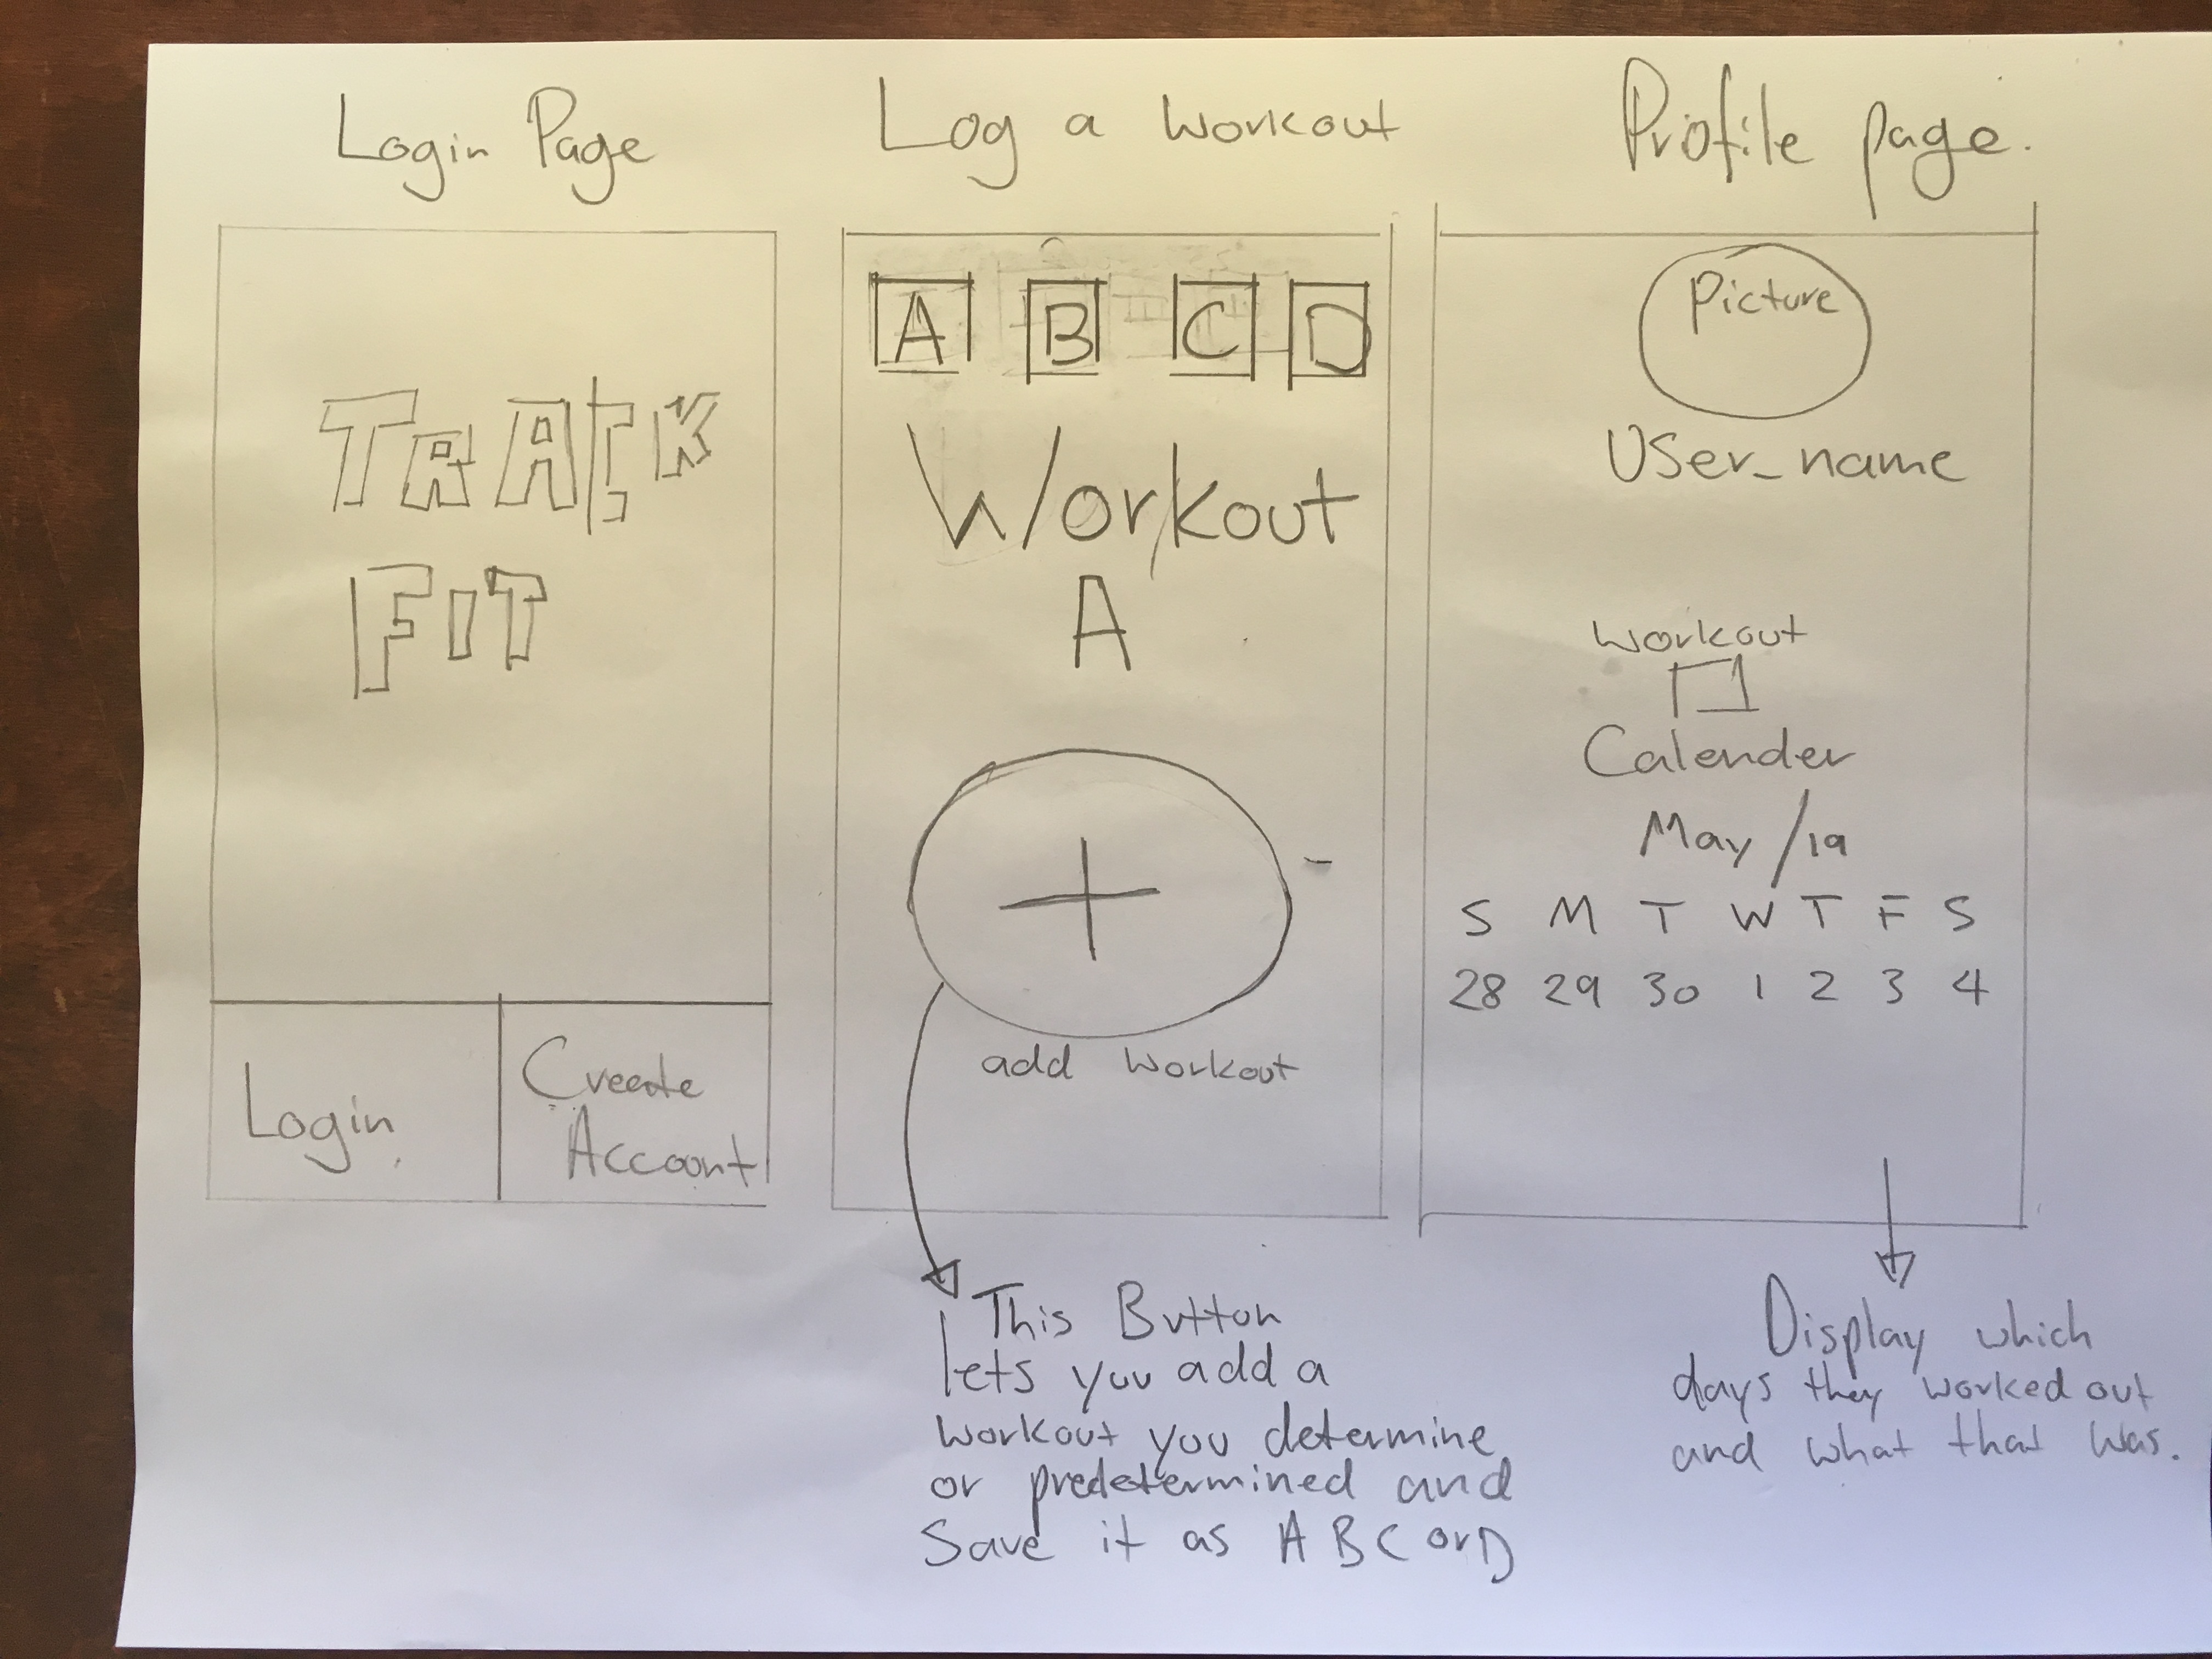 Login Page
TRACK
FIT
Login
Create
Account
Log a Workout
A B C D
Workout
A
+
add workout
This Button
lets you add a
workout you determine
or predetermined and
Save it as A B C or D
Profile Page.
Picture
User_name
Workout
Calender
May/19
S M T W T F S
28 29 30 1 2 3 4
Display which
days they worked out
and what that was.